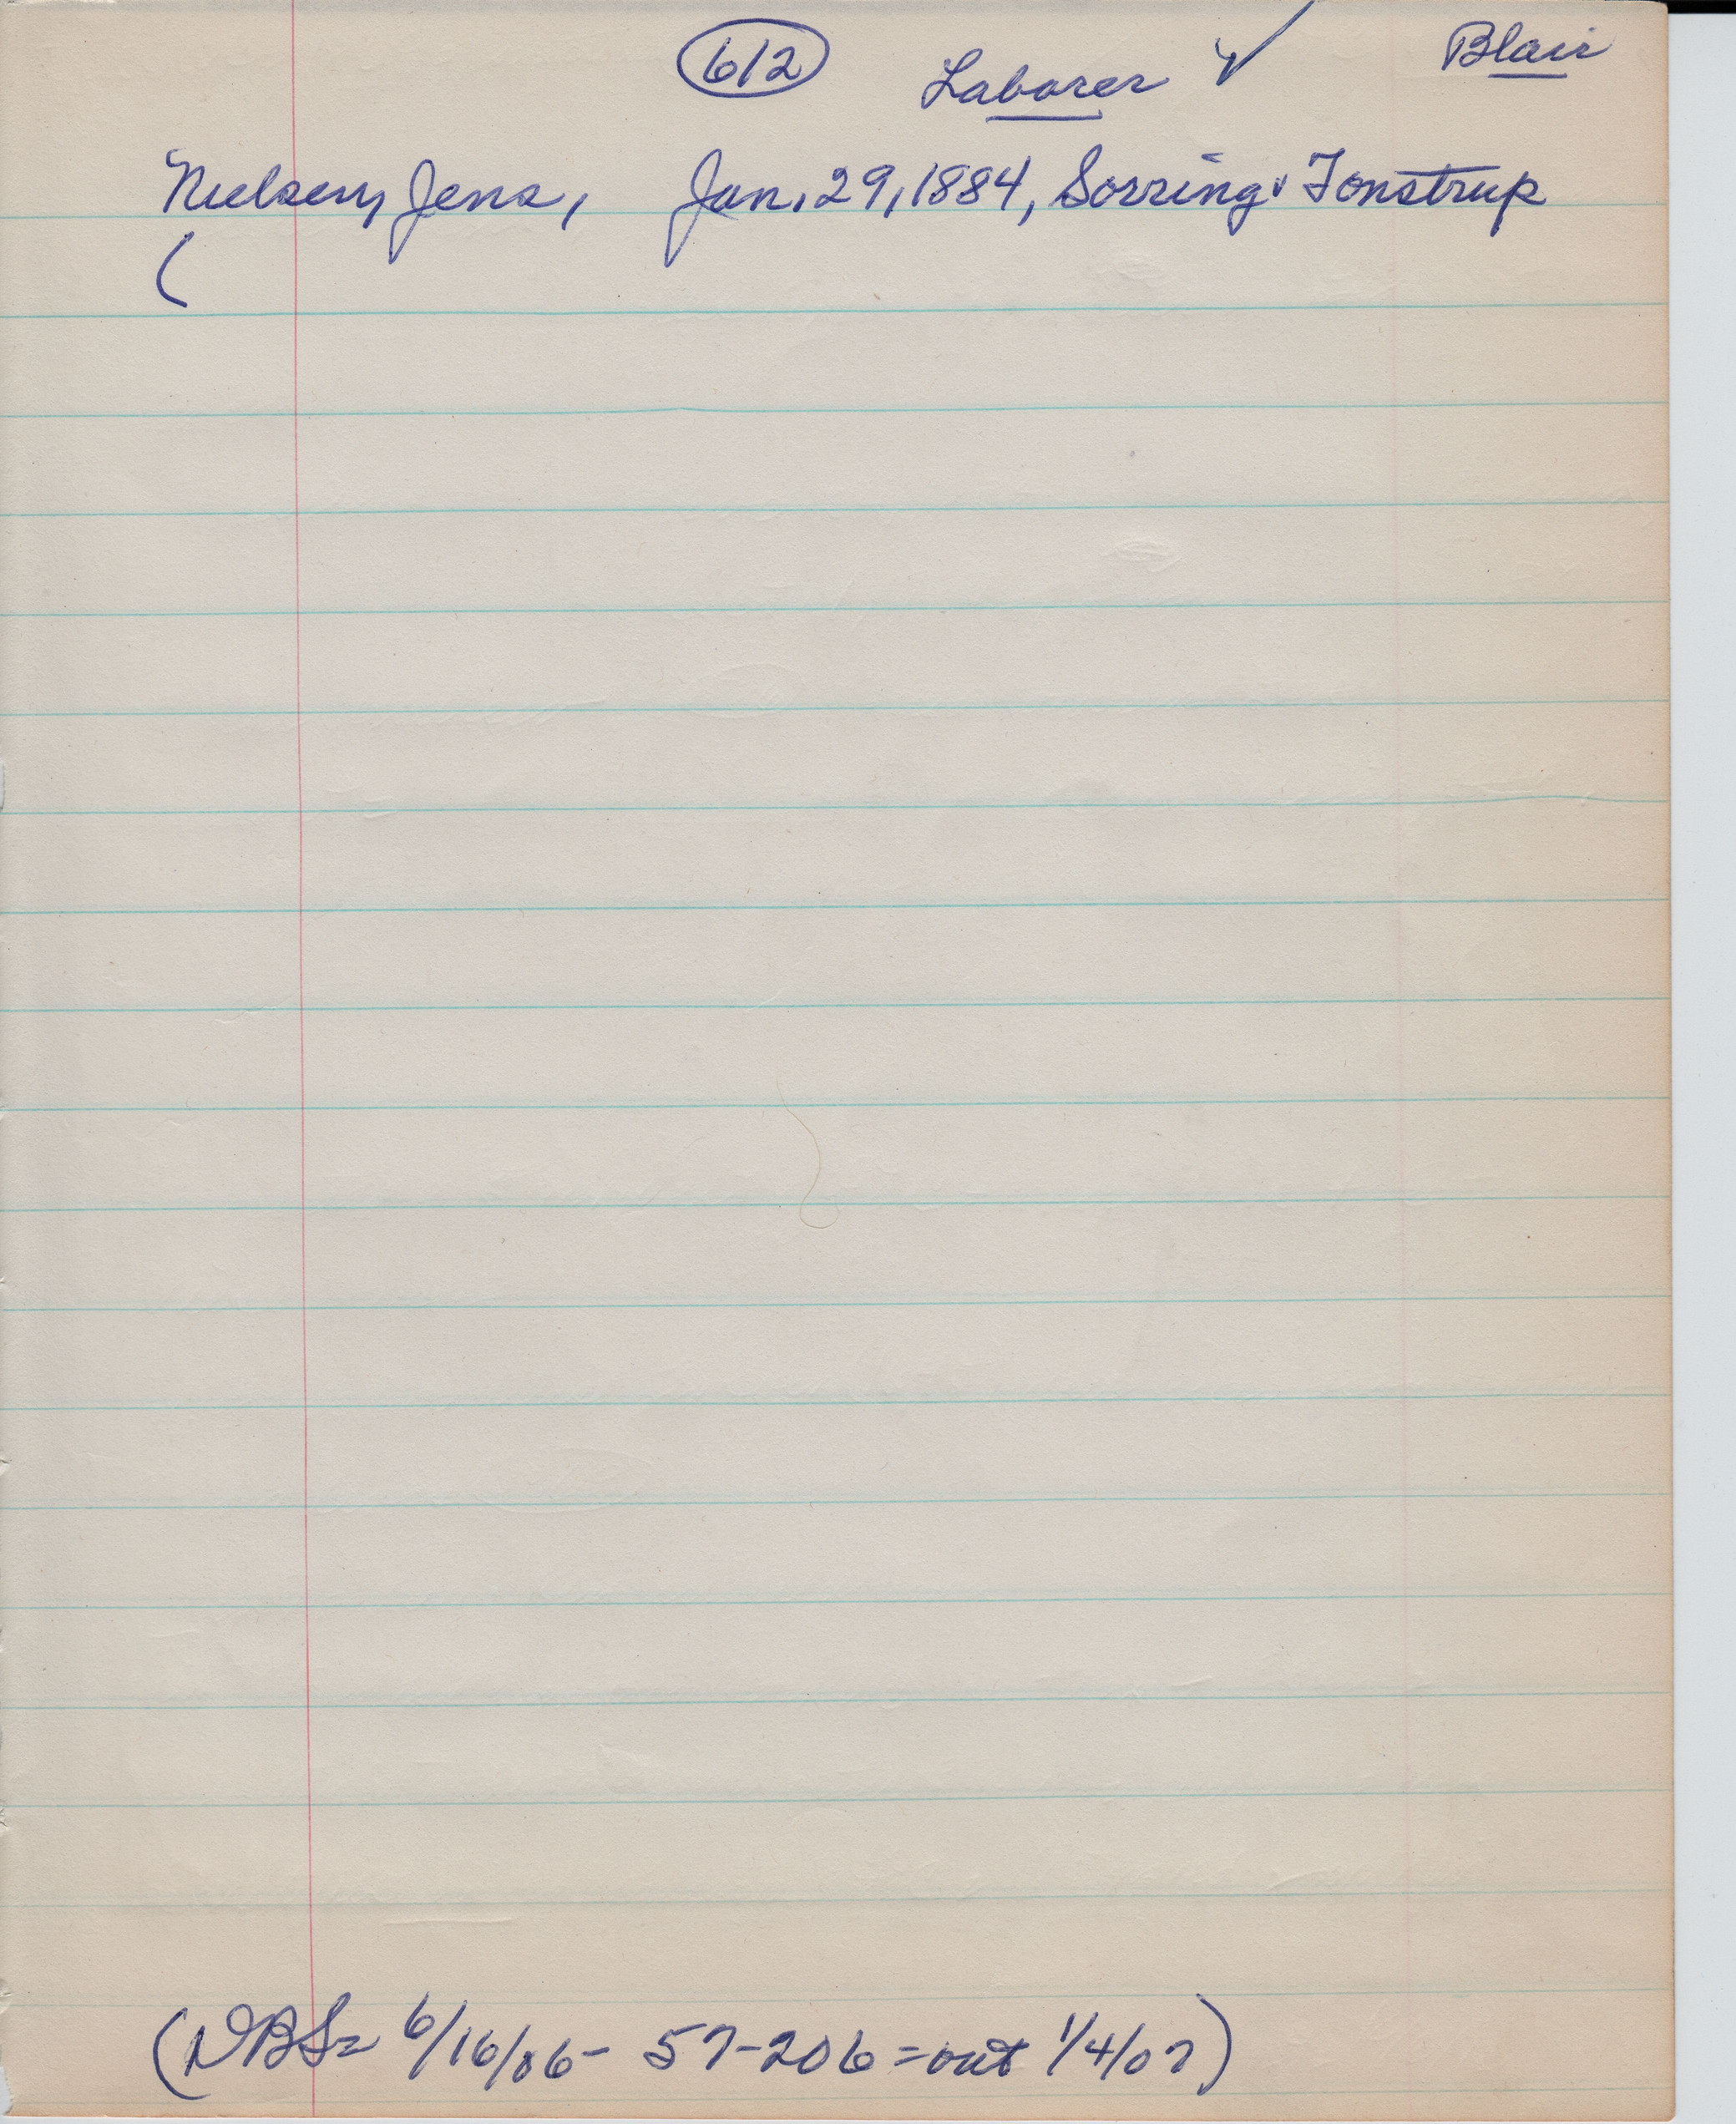 612 Laborer ✓ Blair
Nielsen, Jens, Jan. 29, 1884, Sorring v Fonstrup
(
(DBS= 6/16/06 - 57-206 = out 1/4/07)